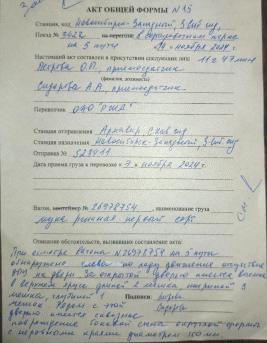 АКТ ОБЩЕЙ ФОРМЫ N 15
Станция, код Новосибирск-Западный, З.Сиб жд
Поезд № 3622 на перегоне в сортировочном парке
на 5 пути "14" ноября 2024 г.
Настоящий акт составлен в присутствии следующих лиц 11 ч 47 мин
Петрова О.П., приемосдатчик
(фамилия, должность)
Сидорова А.А., приемосдатчик
Перевозчик ОАО "РЖД"
Станция отправления Армавир, С.Кав жд
Станция назначения Новосибирск-Западный, З.Сиб жд
Отправка № 523411
Дата приема груза к перевозке «7» ноября 2024 г.
Вагон, контейнер № 26978754 наименование груза
мука пшенная первый сорт
Описание обстоятельств, вызвавших составление акта:
При осмотре вагона N 26978754 на 5 пути
обнаружено слева по ходу движения отсутствие
ЗПУ на двери. За открытой дверью имеется выемка
в верхнем ярусе длиной 2 мешка, шириной 3
мешка, глубиной 1 Подписи:
мешок. Рядом с этой
дверью имеется сквозное
повреждение боковой стены округлой формы
с неровными краями диаметром 150 мм